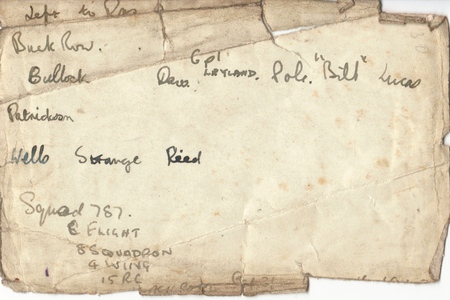 Left to
Back Row.
Cpl
Bullock Dava LEYLAND. Pole. "Bill" Lucas
Patrickson
Wells Strange Reed
Squad 787.
E FLIGHT
8 SQUADRON
4 WING